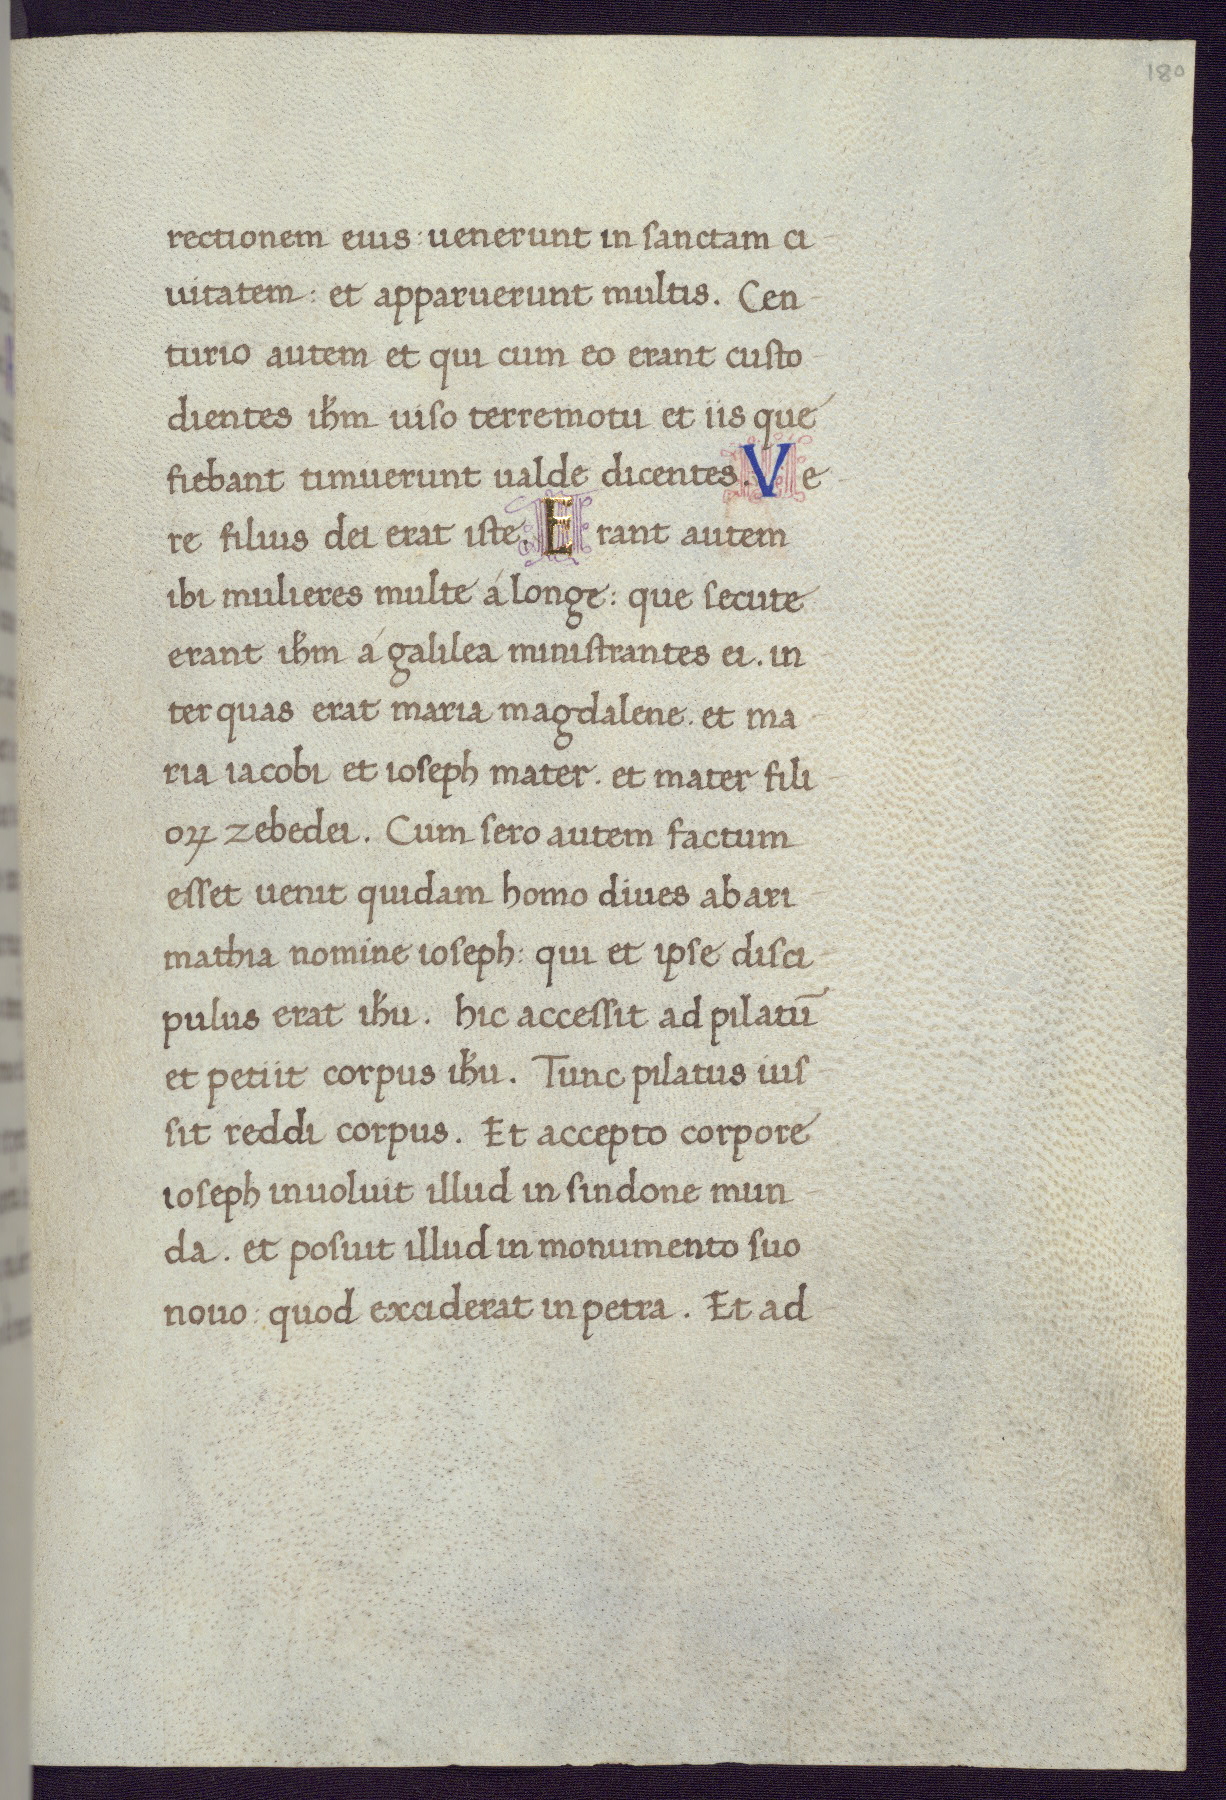 180
rectionem eius: uenerunt in sanctam ci
uitatem: et apparuerunt multis. Cen
turio autem et qui cum eo erant custo
dientes ihm̄ uiso terremotu et iis que
fiebant timuerunt ualde dicentes. Ve
re filius dei erat iste. Erant autem
ibi mulieres multe á longe: que secute
erant ihm̄ á galilea ministrantes ei. in
ter quas erat maria magdalene. et ma
ria iacobi et ioseph mater. et mater fili
oꝝ zebedei. Cum sero autem factum
esset uenit quidam homo diues ab ari
mathia nomine ioseph: qui et ipse disci
pulus erat ihū. hic accessit ad pilatū
et petiit corpus ihū. Tunc pilatus ius
sit reddi corpus. Et accepto corpore
ioseph inuoluit illud in sindone mun
da. et posuit illud in monumento suo
nouo: quod exciderat in petra. Et ad